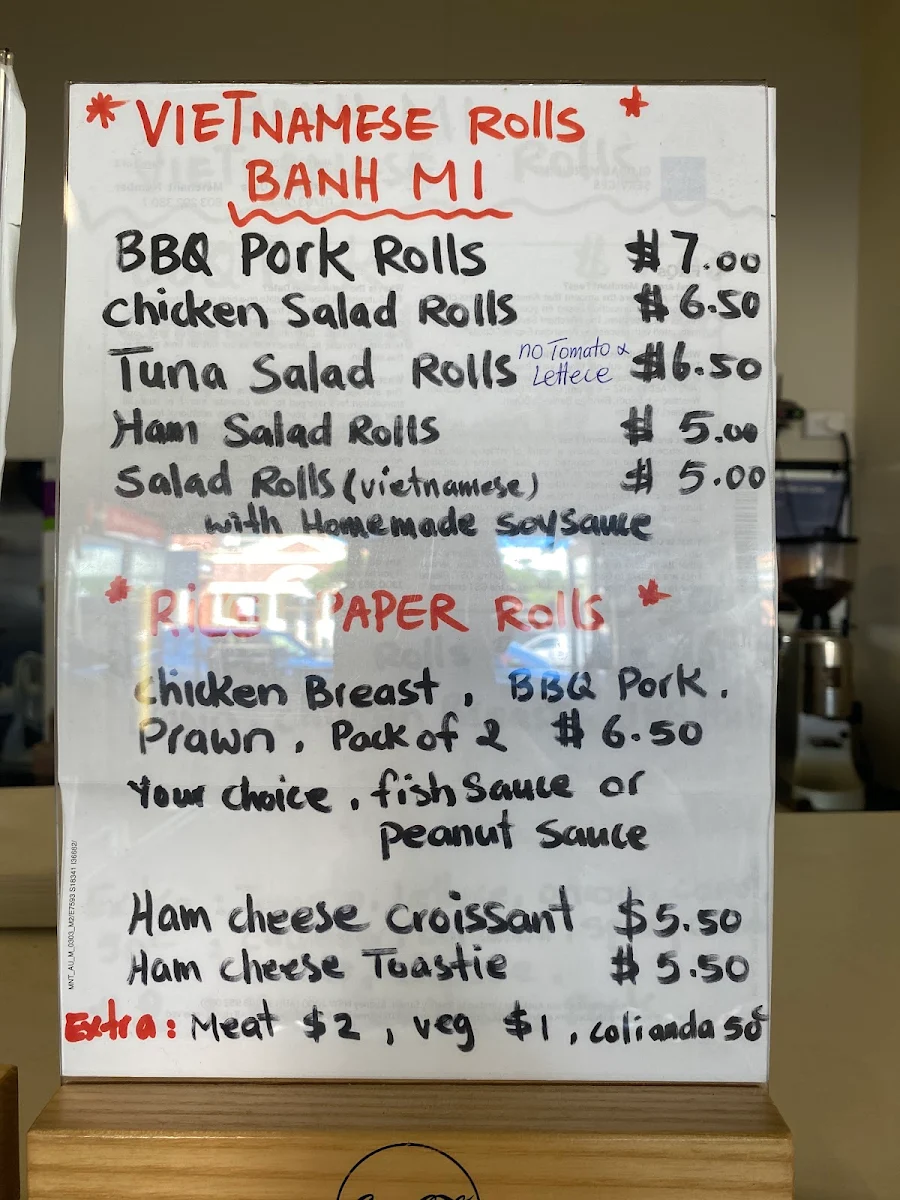 * VIETNAMESE Rolls *
BANH MI
BBQ Pork Rolls $7.00
Chicken Salad Rolls $6.50
Tuna Salad Rolls no Tomato & Lettece $6.50
Ham Salad Rolls $5.00
Salad Rolls (vietnamese) $5.00
with Homemade soysauce
* RiCE PAPER Rolls *
Chicken Breast, BBQ Pork.
Prawn, Pack of 2 $6.50
Your choice, fish Sauce or
peanut Sauce
Ham cheese croissant $5.50
Ham cheese Toastie $5.50
Extra: Meat $2, veg $1, colianda 50¢
MNT_AU_M_0303_M2/E7593 S18341 I36662/